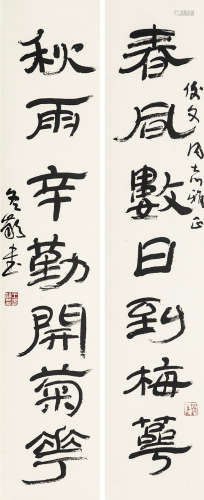 俊文同志雅正
春風數日到梅萼
秋雨辛勤開菊華
冬齡書